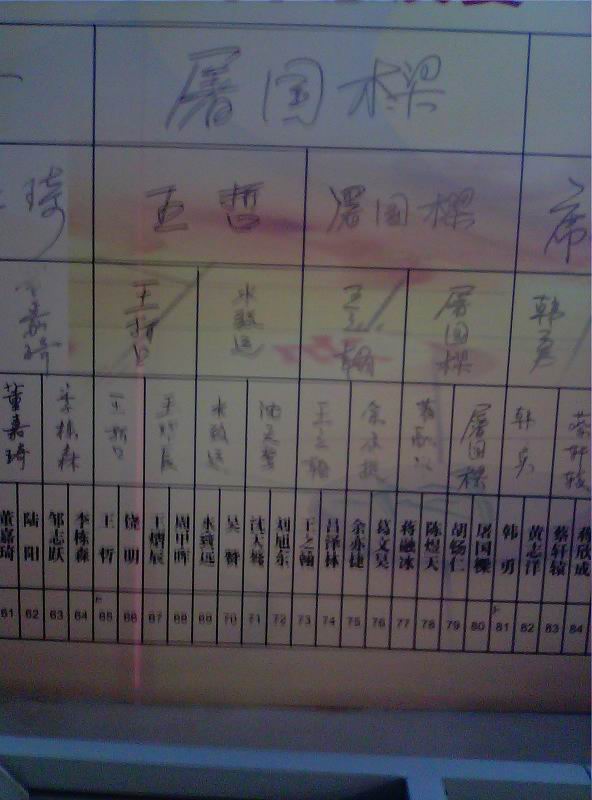 屠国樑
琦 王哲 屠国樑 席
董嘉琦 王哲 水致远 王之翰 屠国樑 韩勇
董嘉琦 李栋森 王哲 王熠辰 水致远 沈天骜 王之翰 余亦捷 蒋融冰 屠国樑 韩勇 蔡轩辕
董嘉琦 陆阳 邹志跃 李栋森 王哲 饶明 王熠辰 周甲晖 水致远 吴赞 沈天骜 刘旭东 王之翰 吕泽林 余亦捷 葛文昊 蒋融冰 陈煜天 胡畅仁 屠国樑 韩勇 黄志洋 蔡轩辕 蒋欣成
61 62 63 64 65 66 67 68 69 70 71 72 73 74 75 76 77 78 79 80 81 82 83 84